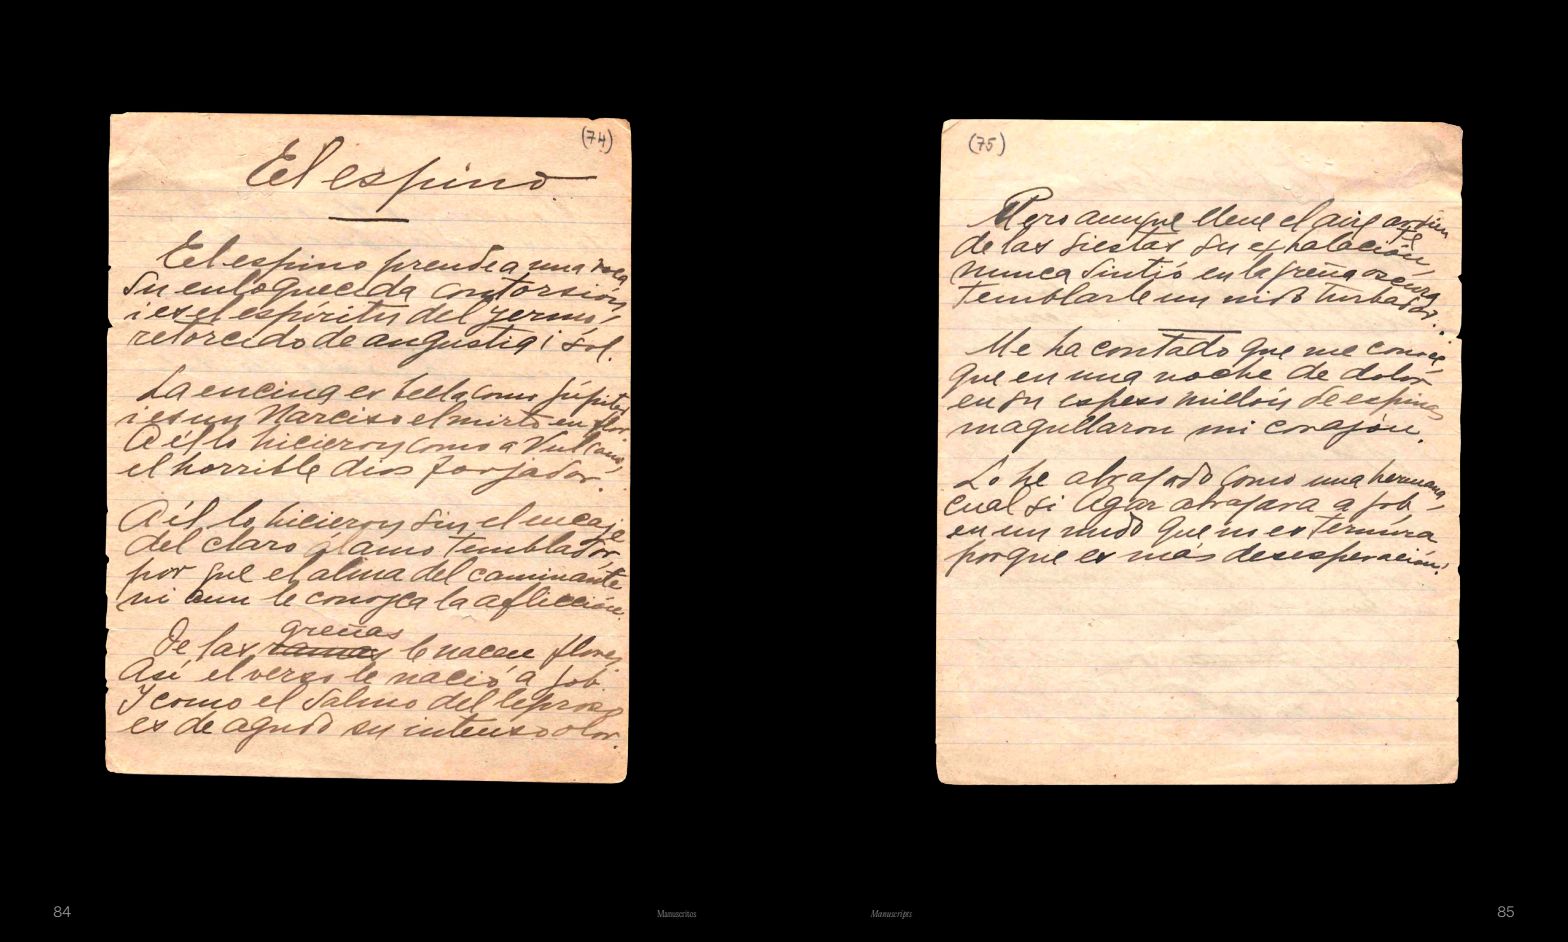 (74)
El espino
El espino prende a una roca
su enloquecida contorsion,
i es el espíritu del yermo,
retorcido de angustia i sol.
La encina es bella como Júpiter
i es un Narciso el mirto en flor.
A él lo hicieron como a Vulcano,
el horrible dios forjador.
A él lo hicieron sin el encaje
del claro álamo temblador,
por que el alma del caminante
ni aun le conozca la aflicción.
greñas
De las ramas le nacen flores
Así el verso le nació a Job.
Y como el salmo del leproso
es de agudo su intenso olor.
(75)
Pero aunque llene el aire
de las siestas su exhalación,
nunca sintió en la greña oscura
temblarle un nido turbador...
Me ha contado que me conoce,
que en una noche de dolor
en su espeso millón de espinas
magullaron mi corazón.
Lo he abrazado como una hermana,
cual si Agar abrazara a Job,
en un nudo que no es ternura
porque es más desesperación!
84
Manuscritos
Manuscripts
85